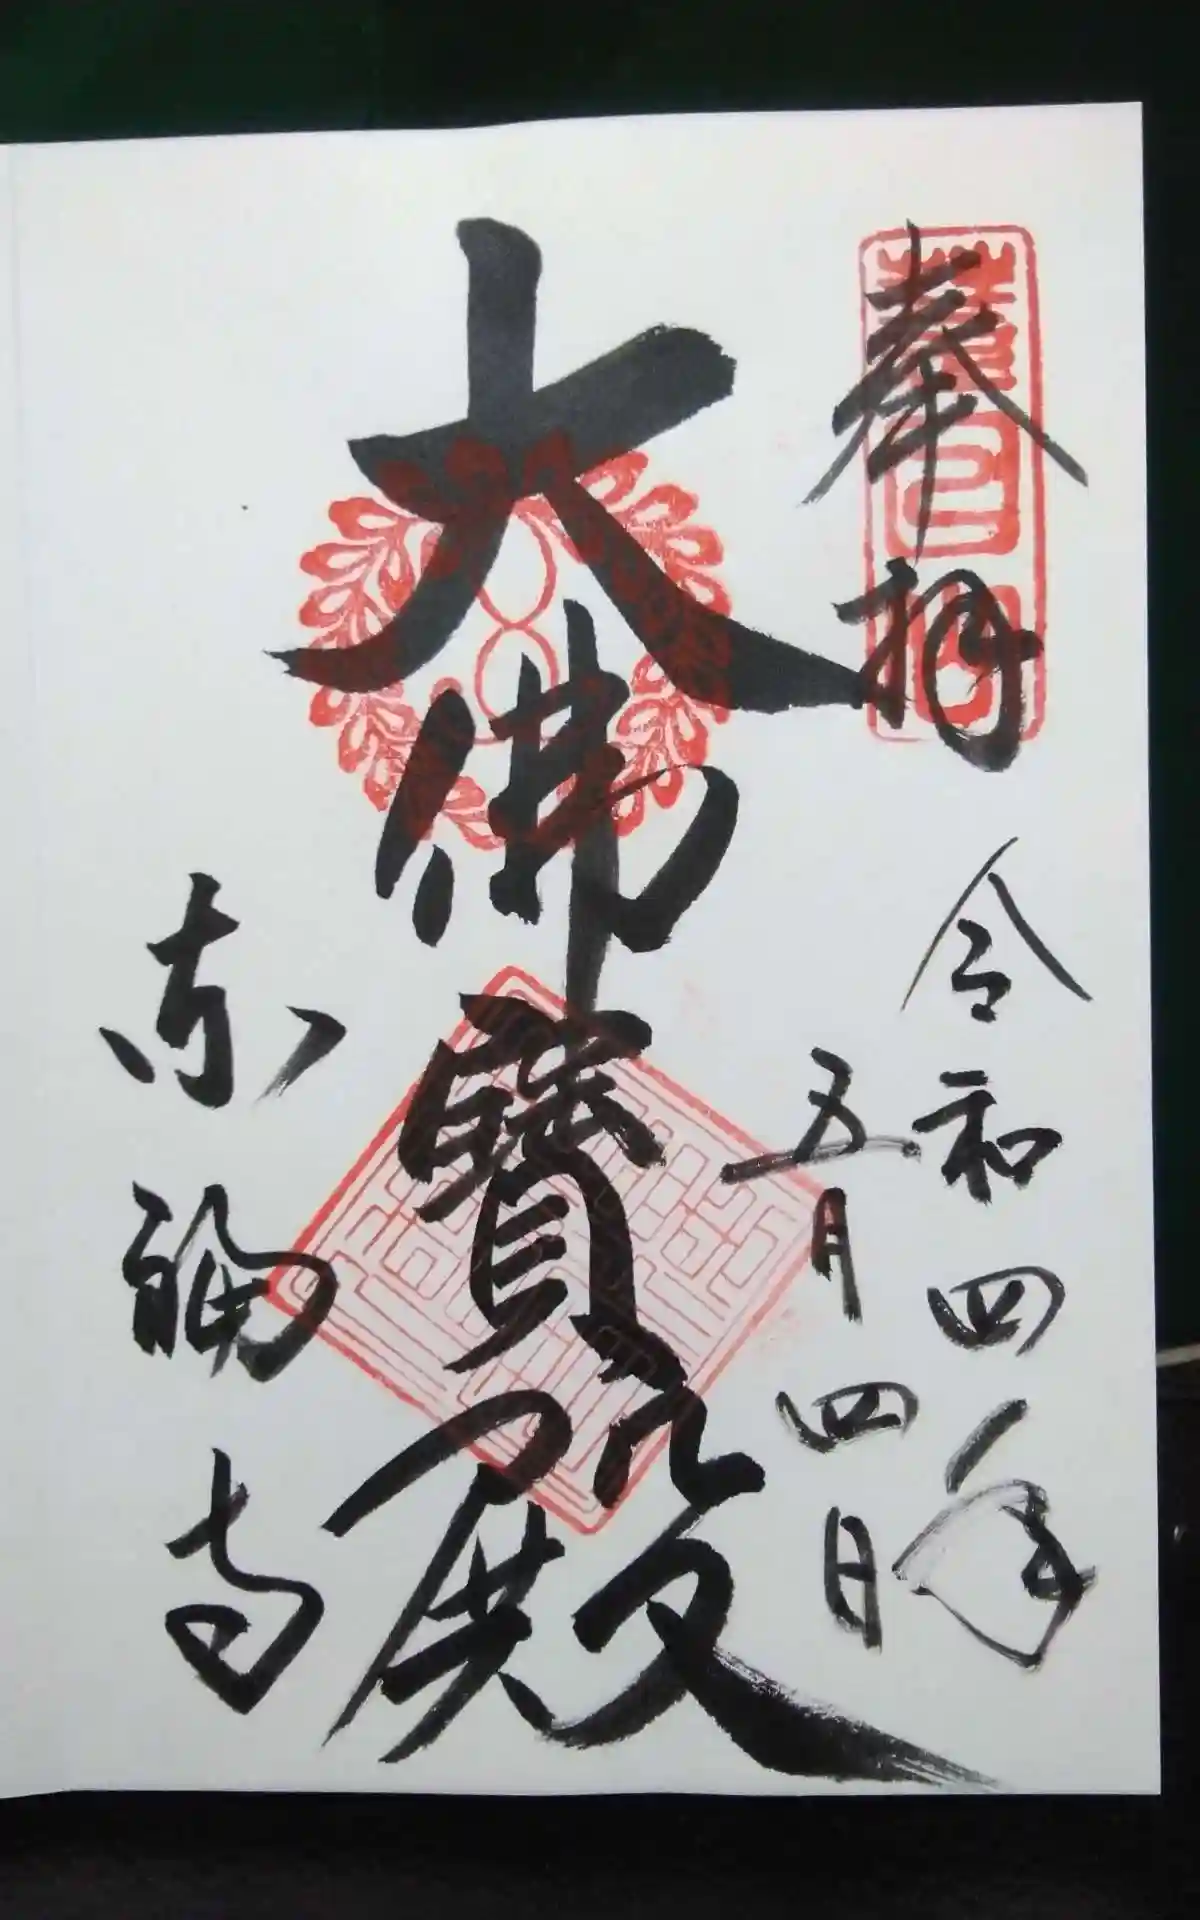 奉拝
令和四年
五月四日
大佛寳殿
東福寺